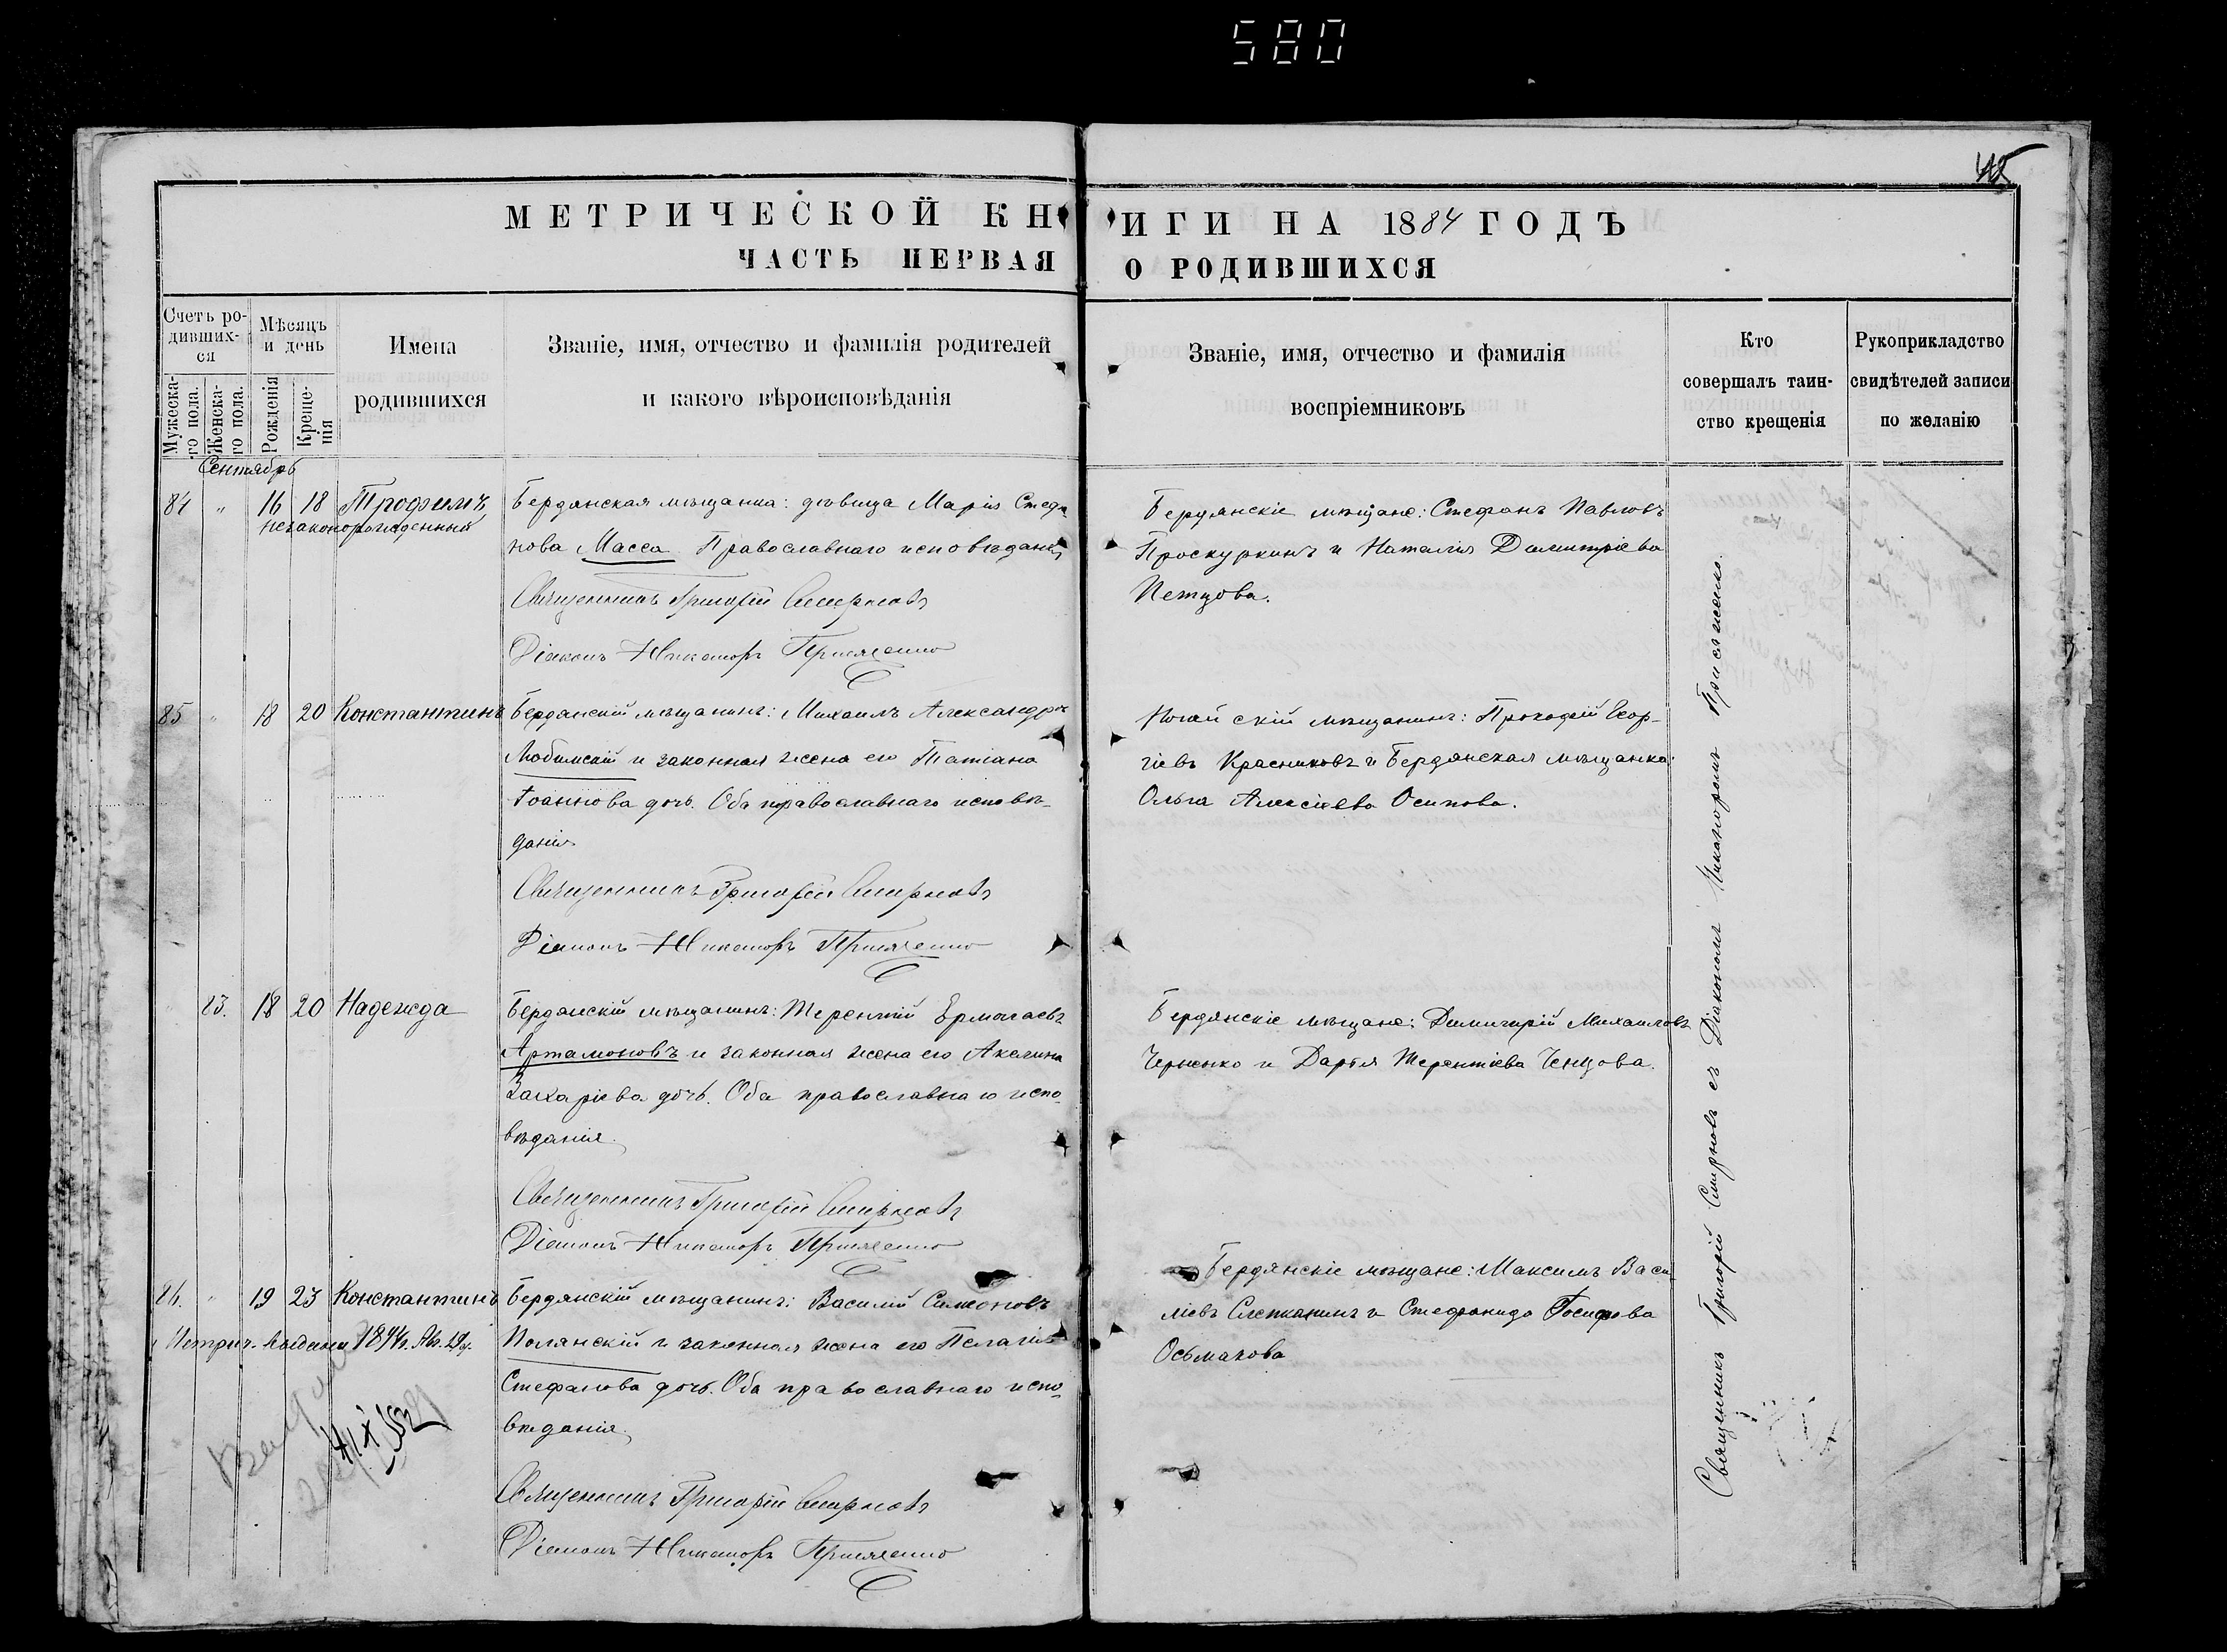 580
45
МЕТРИЧЕСКОЙ КН
ИГИ НА 1884 ГОДЪ
ЧАСТЬ ПЕРВАЯ
О РОДИВШИХСЯ
Счетъ ро-
дивших-
ся
Мужеска-
го пола.
Женска-
го пола.
Мѣсяцъ
и день
Рожденія
Креще-
нія
Имена
родившихся
Званіе, имя, отчество и фамилія родителей
и какого вѣроисповѣданія
Званіе, имя, отчество и фамилія
воспріемниковъ
Кто
совершалъ таин-
ство крещенія
Рукоприкладство
свидѣтелей записи
по желанію
Сентябрь
84 " 16 18 Трофимъ
незаконорожденный
Бердянская мѣщанка: дѣвица Марія Стефа
нова Масса Православнаго исповѣданія
Священникъ Григорій Смирновъ
Діаконъ Никаноръ Присяженко
Бердянскіе мѣщане: Стефанъ Павловъ
Проскуркинъ и Наталія Димитріева
Петцова.
85 " 18 20 Константинъ
Бердянскій мѣщанинъ: Михаилъ Александровъ
Любимскій и законная жена его Татіана
Іоаннова дочь. Оба православнаго исповѣ-
данія
Священникъ Григорій Смирновъ
Діаконъ Никаноръ Присяженко
Ногайскій мѣщанинъ: Прокофій Геор-
гіевъ Красниковъ и Бердянская мѣщанка:
Ольга Алексіева Осипова.
23. 18 20 Надежда
Бердянскій мѣщанинъ: Терентій Ермолаевъ
Артамоновъ и законная жена его Акелина
Захаріева дочь. Оба православнаго испо-
вѣданія.
Священникъ Григорій Смирновъ
Діаконъ Никаноръ Присяженко
Бердянскіе мѣщане: Димитрій Михаиловъ
Черненко и Дарья Терентіева Ченцова.
86. " 19 23 Константинъ
Метрич. выдана
Бердянскій мѣщанинъ: Василій Симеоновъ
Полянскій и законная жена его Пелагія
Стефанова дочь. Оба православнаго испо-
вѣданія.
Священникъ Григорій Смирновъ
Діаконъ Никаноръ Присяженко
Бердянскіе мѣщане: Максимъ Васи
ліевъ Слепканинъ и Стефанида Іосифова
Осьмакова
Священникъ Григорій Смирновъ съ Діакономъ Никаноромъ Присяженко.